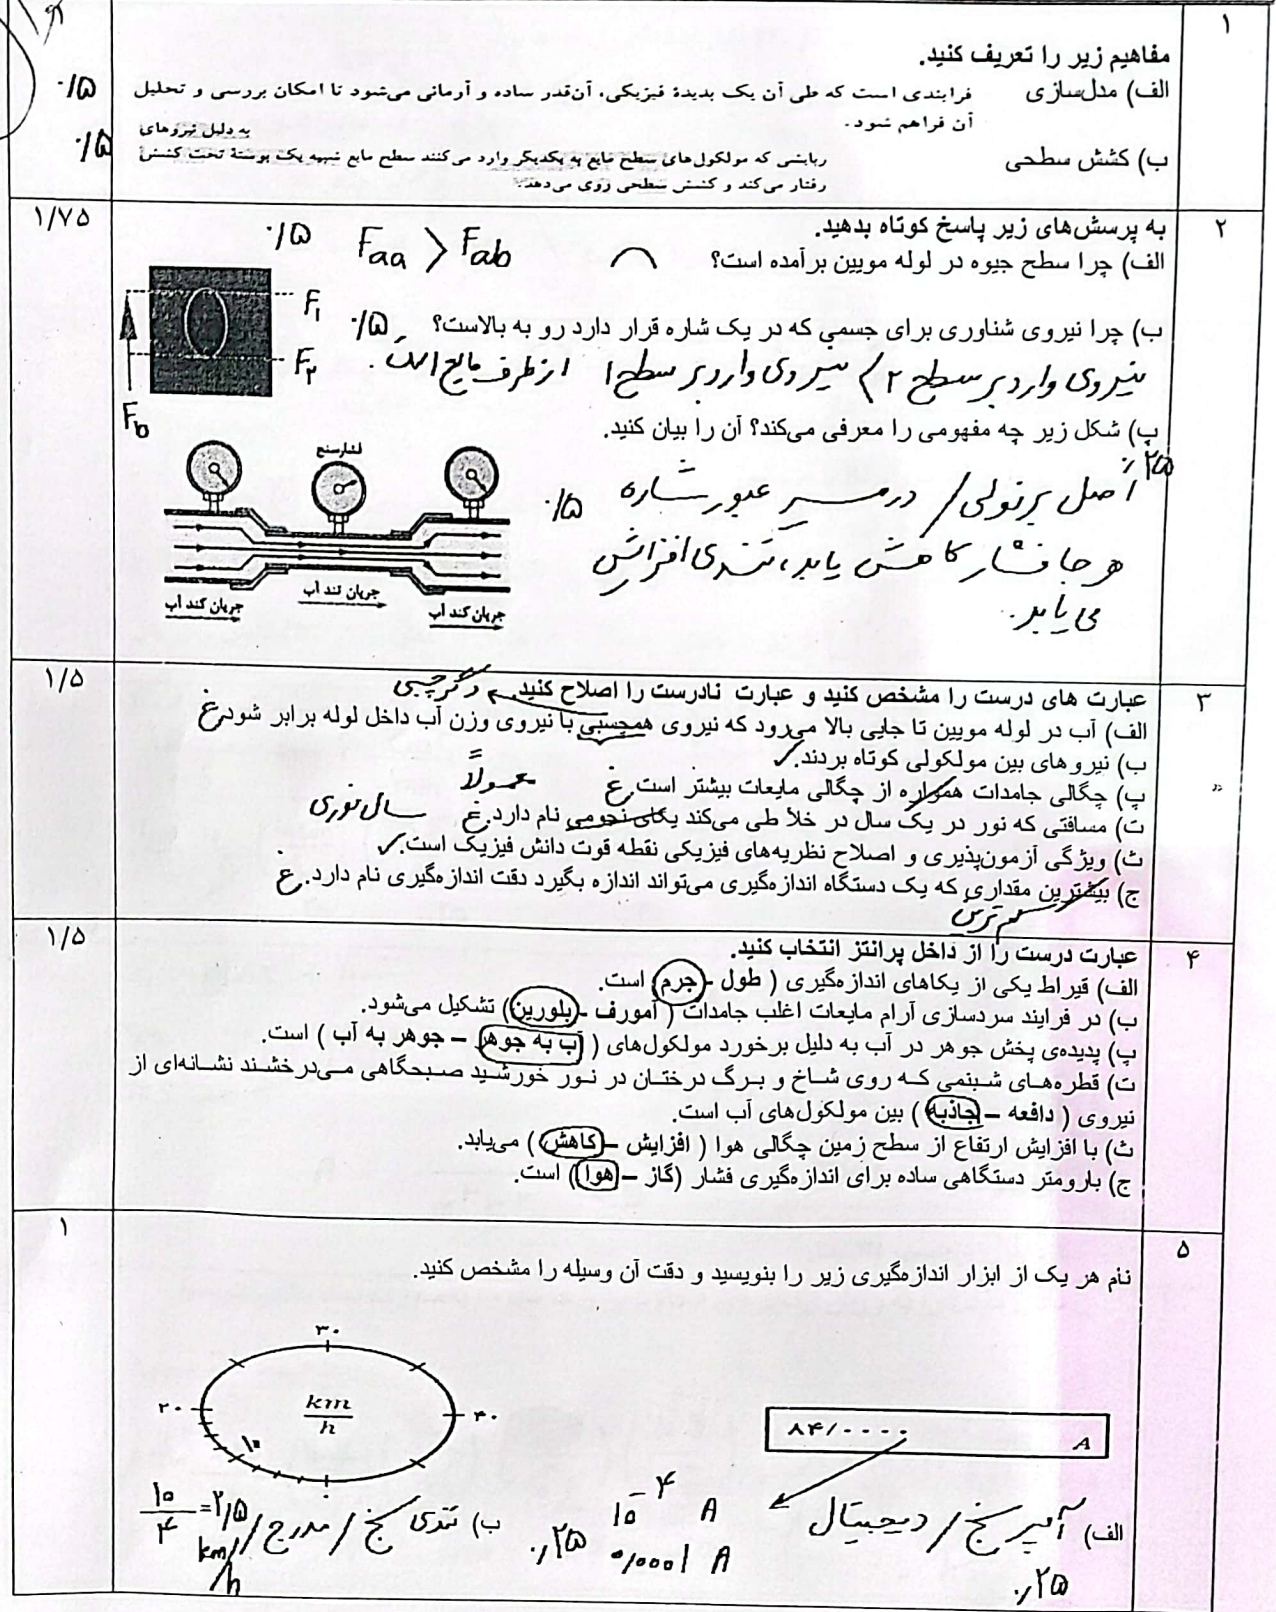 ۱
مفاهیم زیر را تعریف کنید.
۰/۵
الف) مدل‌سازی فرایندی است که طی آن یک بدیدهٔ فیزیکی، آن‌قدر ساده و آرمانی می‌شود تا امکان بررسی و تحلیل
آن فراهم شود.
۰/۵
به دلیل نیروهای
ب) کشش سطحی ربایشی که مولکول‌های سطح مایع به یکدیگر وارد می‌کنند سطح مایع شبیه یک پوستهٔ تحت کشش
رفتار می‌کند و کشش سطحی روی می‌دهد.
۲
۱/۷۵
به پرسش‌های زیر پاسخ کوتاه بدهید.
الف) چرا سطح جیوه در لوله مویین برآمده است؟
Faa > Fab ۰/۵
ب) چرا نیروی شناوری برای جسمی که در یک شاره قرار دارد رو به بالاست؟ ۰/۵
نیروی وارد بر سطح ۲ > نیروی وارد بر سطح ۱ از طرف مایع است.
F۱
F۲
Fb
پ) شکل زیر چه مفهومی را معرفی می‌کند؟ آن را بیان کنید.
۰/۲۵
اصل برنولی / در مسیر عبور شاره ۰/۵
هر جا فشار کاهش یابد، تندی افزایش
می یابد.
فشارسنج
جریان کند آب
جریان تند آب
جریان کند آب
۳
۱/۵
عبارت های درست را مشخص کنید و عبارت نادرست را اصلاح کنید. دگرچسبی
الف) آب در لوله مویین تا جایی بالا می‌رود که نیروی همچسبی با نیروی وزن آب داخل لوله برابر شود. غ
ب) نیروهای بین مولکولی کوتاه بردند. ✓
پ) چگالی جامدات همواره از چگالی مایعات بیشتر است. غ معمولاً
ت) مسافتی که نور در یک سال در خلأ طی می‌کند یکای نجومی نام دارد. غ سال نوری
ث) ویژگی آزمون‌پذیری و اصلاح نظریه‌های فیزیکی نقطه قوت دانش فیزیک است. ✓
ج) بیشترین مقداری که یک دستگاه اندازه‌گیری می‌تواند اندازه بگیرد دقت اندازه‌گیری نام دارد. غ
کم ترین
۴
۱/۵
عبارت درست را از داخل پرانتز انتخاب کنید.
الف) قیراط یکی از یکاهای اندازه‌گیری ( طول - جرم) است.
ب) در فرایند سردسازی آرام مایعات اغلب جامدات ( آمورف - بلورین) تشکیل می‌شود.
پ) پدیده‌ی پخش جوهر در آب به دلیل برخورد مولکول‌های ( آب به جوهر – جوهر به آب ) است.
ت) قطره‌های شبنمی که روی شاخ و برگ درختان در نور خورشید صبحگاهی می‌درخشند نشانه‌ای از
نیروی ( دافعه – جاذبه ) بین مولکول‌های آب است.
ث) با افزایش ارتفاع از سطح زمین چگالی هوا ( افزایش – کاهش ) می‌یابد.
ج) بارومتر دستگاهی ساده برای اندازه‌گیری فشار (گاز – هوا) است.
۵
۱
نام هر یک از ابزار اندازه‌گیری زیر را بنویسید و دقت آن وسیله را مشخص کنید.
۳۰
۲۰
km/h
۴۰
۱۰
۰
۸۴/۰۰۰۰ A
الف) آمپرسنج / دیجیتال
۰/۲۵
10⁻⁴ A
0/0001 A
۰/۲۵
ب) تندی سنج / مدرج / ۱۰/۴ = ۲/۵ km/h